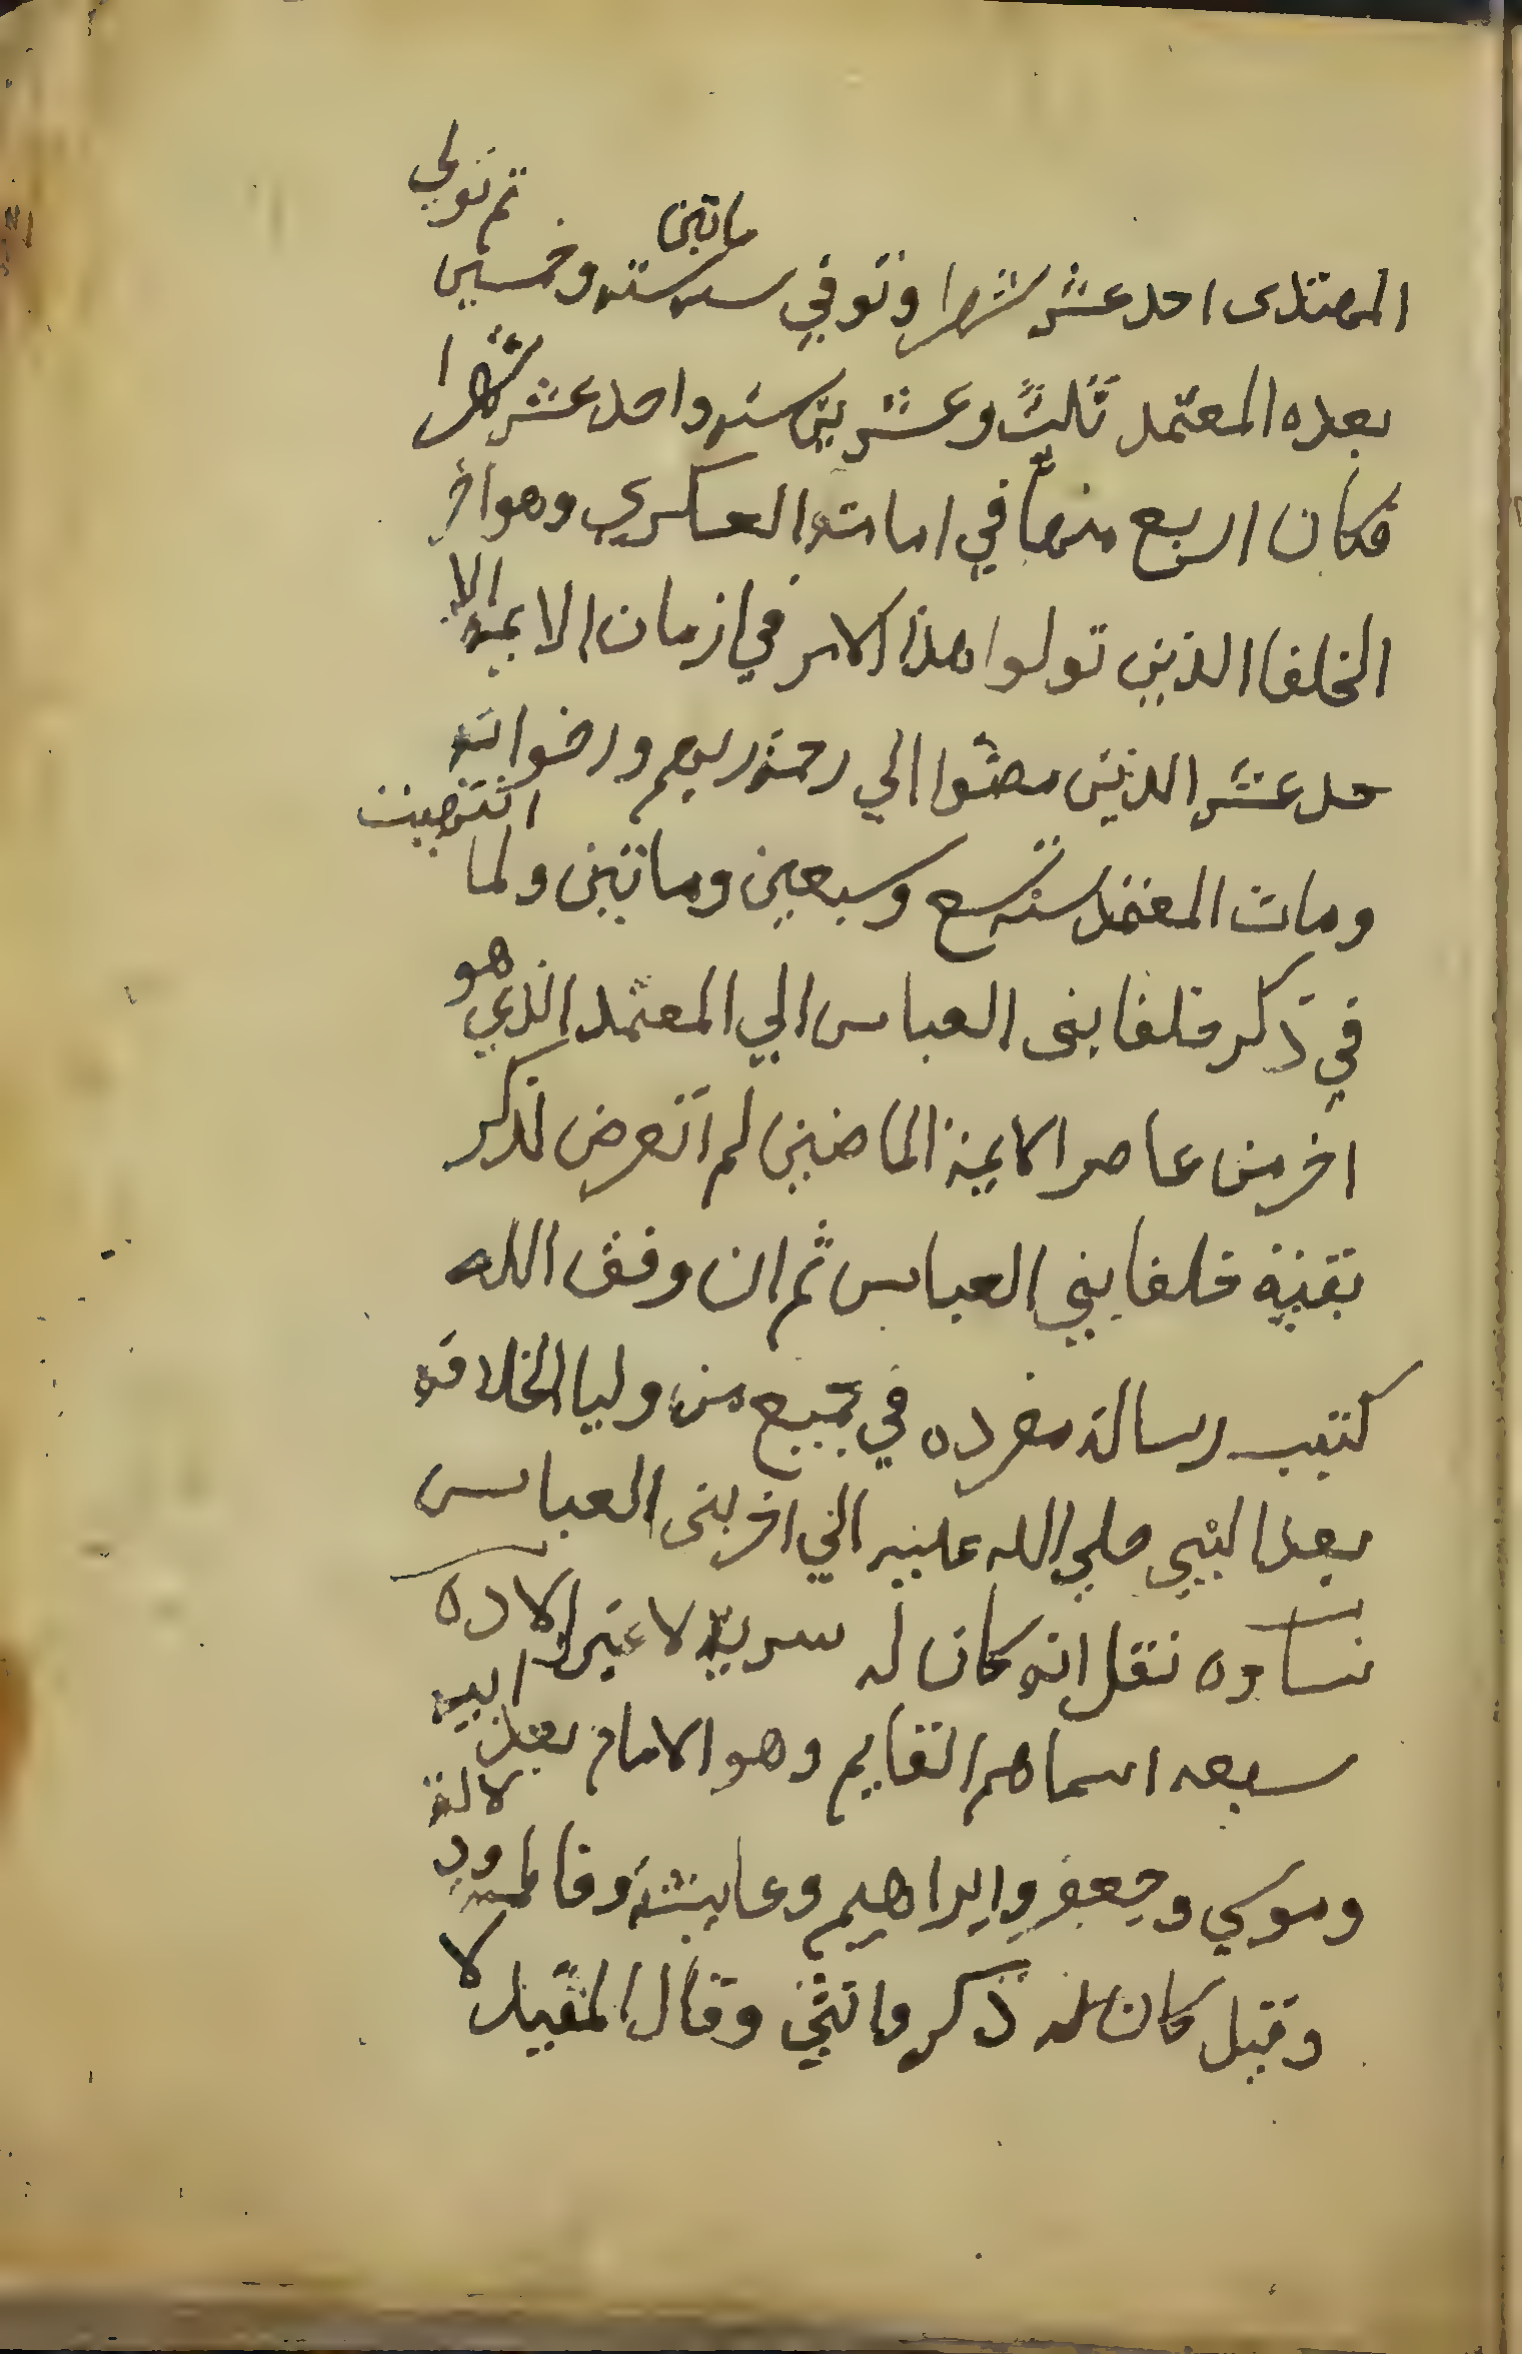 المهتدى احد عشر شهرا وتوفي سنه سته وخمسين ماتين ثم تولي
بعده المعتمد ثلث وعشرين سنه واحد عشر شهرا
فكان اربع منها في امامة العسكري وهو اخر
الخلفا الذين تولوا هذا الامر في ازمان الايمة الا
حد عشر الذين مضوا الي رحمة ربهم ورضوانه
ومات المعتمد سنه تسع وسبعين وماتين ولما انتهيت
في ذكر خلفا بنى العباس الي المعتمد الذي هو
اخر من عاصر الايمة الماضين لم اتعرض لذكر
بقية خلفا بني العباس ثم ان وفق الله
كتبت رسالة مفرده في جميع من وليا الخلافه
بعد النبي صلي الله عليه الي اخر بنى العباس
نساوه نقل انه كان له سرية لا غير اولاده
سبعه اسماهم القايم وهو الامام بعد ابيه
وموسي وجعفر وابراهيم وعايشة وفاطمه ود لالة
وقيل كان له ذكر وانثي وقال المفيد لا